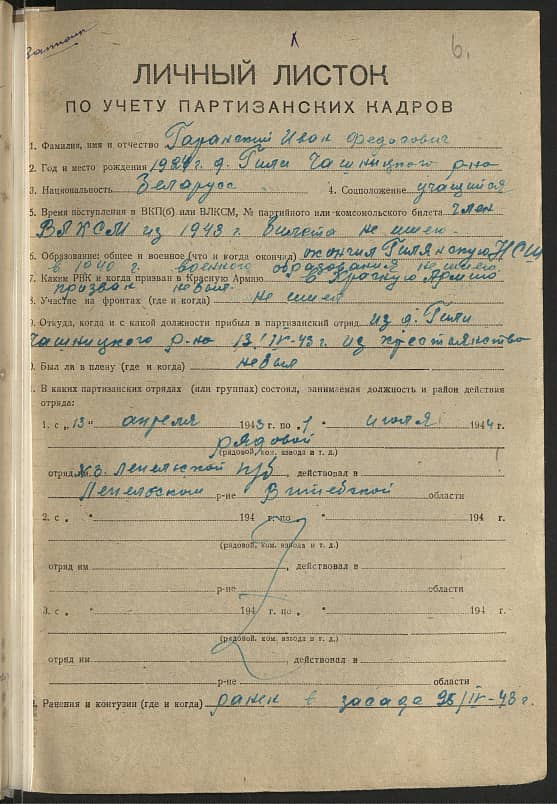 6.
ЛИЧНЫЙ ЛИСТОК
ПО УЧЕТУ ПАРТИЗАНСКИХ КАДРОВ
1. Фамилия, имя и отчество Гаранский Иван Федорович
2. Год и место рождения 1924 г. д. Гили Чашницкого р-на
3. Национальность Беларусс 4. Соцположение учащийся
5. Время поступления в ВКП(б) или ВЛКСМ, № партийного или комсомольского билета член
ВЛКСМ из 1943 г. билета не имею.
6. Образование: общее и военное (что и когда окончил) окончил Гилянскую НСШ
в 1940 г. военного образования не имею.
7. Каким РВК и когда призван в Красную Армию в Красную Армию
призван небыл.
8. Участие на фронтах (где и когда) не имел
9. Откуда, когда и с какой должности прибыл в партизанский отряд из д. Гили
Чашницкого р-на 13/IV-43 г. из крестьянства
Был ли в плену (где и когда) небыл
В каких партизанских отрядах (или группах) состоял, занимаемая должность и район действия
отряда:
1. с „13" апреля 1943 г. по „1 июля 1944 г.
рядовой
(рядовой, ком. взвода и т. д.)
отряд №3. Лепельской п/б, действовал в
Лепельском р-не Витебской области
2. с „ " 194 г. по „ " 194 г.
(рядовой, ком. взвода и т. д.)
отряд им , действовал в
р-не области
3. с „ " 194 г. по „ " 194 г.
(рядовой, ком. взвода и т. д.)
отряд им , действовал в
р-не области
Ранения и контузии (где и когда) ранен в засаде /IV-43 г.